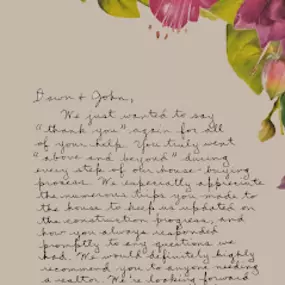 Dawn & John,
We just wanted to say
"thank you" again for all
of your help. You truly went
"above and beyond" during
every step of our house-buying
process. We especially appreciate
the numerous trips you made to
the house to keep us updated on
the construction progress, and
how you always responded
promptly to any questions we
had. We would definitely highly
recommend you to anyone needing
a realtor. We're looking forward